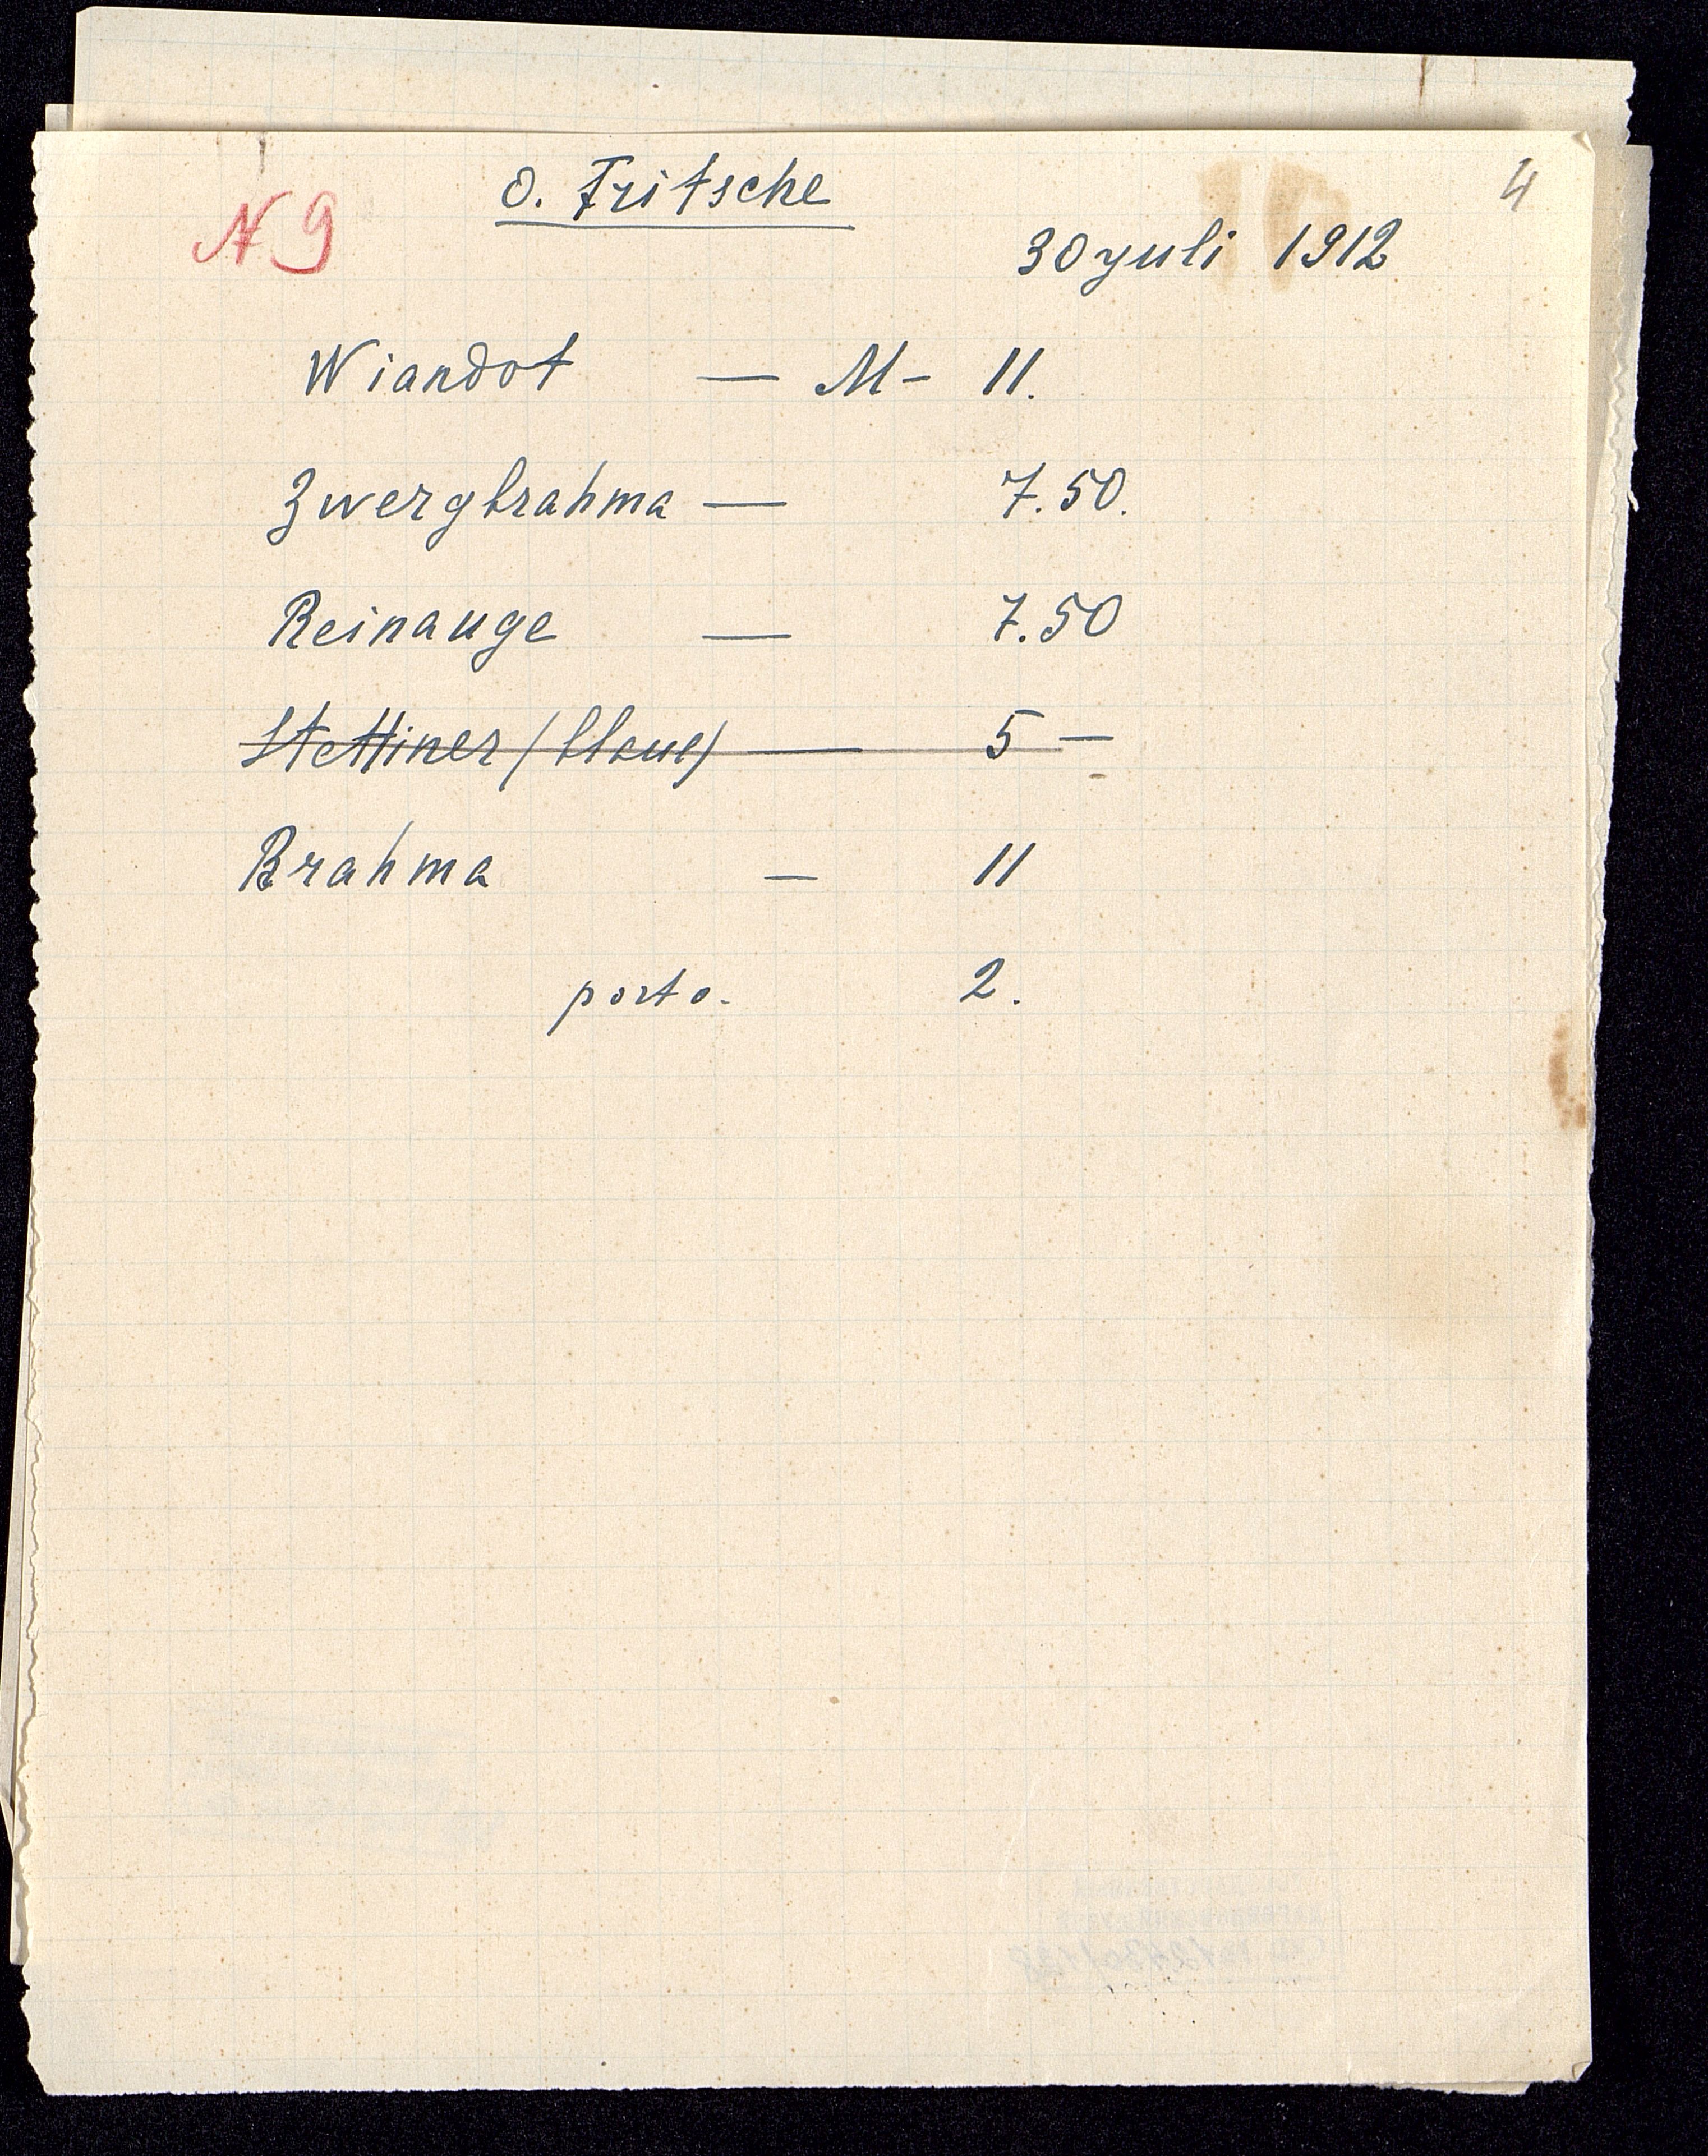 4
N 9
O. Fritsche
30 yuli 1912
Wiandot — M- 11.
Zwergbrahma — 7.50.
Reinauge — 7.50
Stettiner (blaue) — 5 —
Brahma — 11
porto. 2.